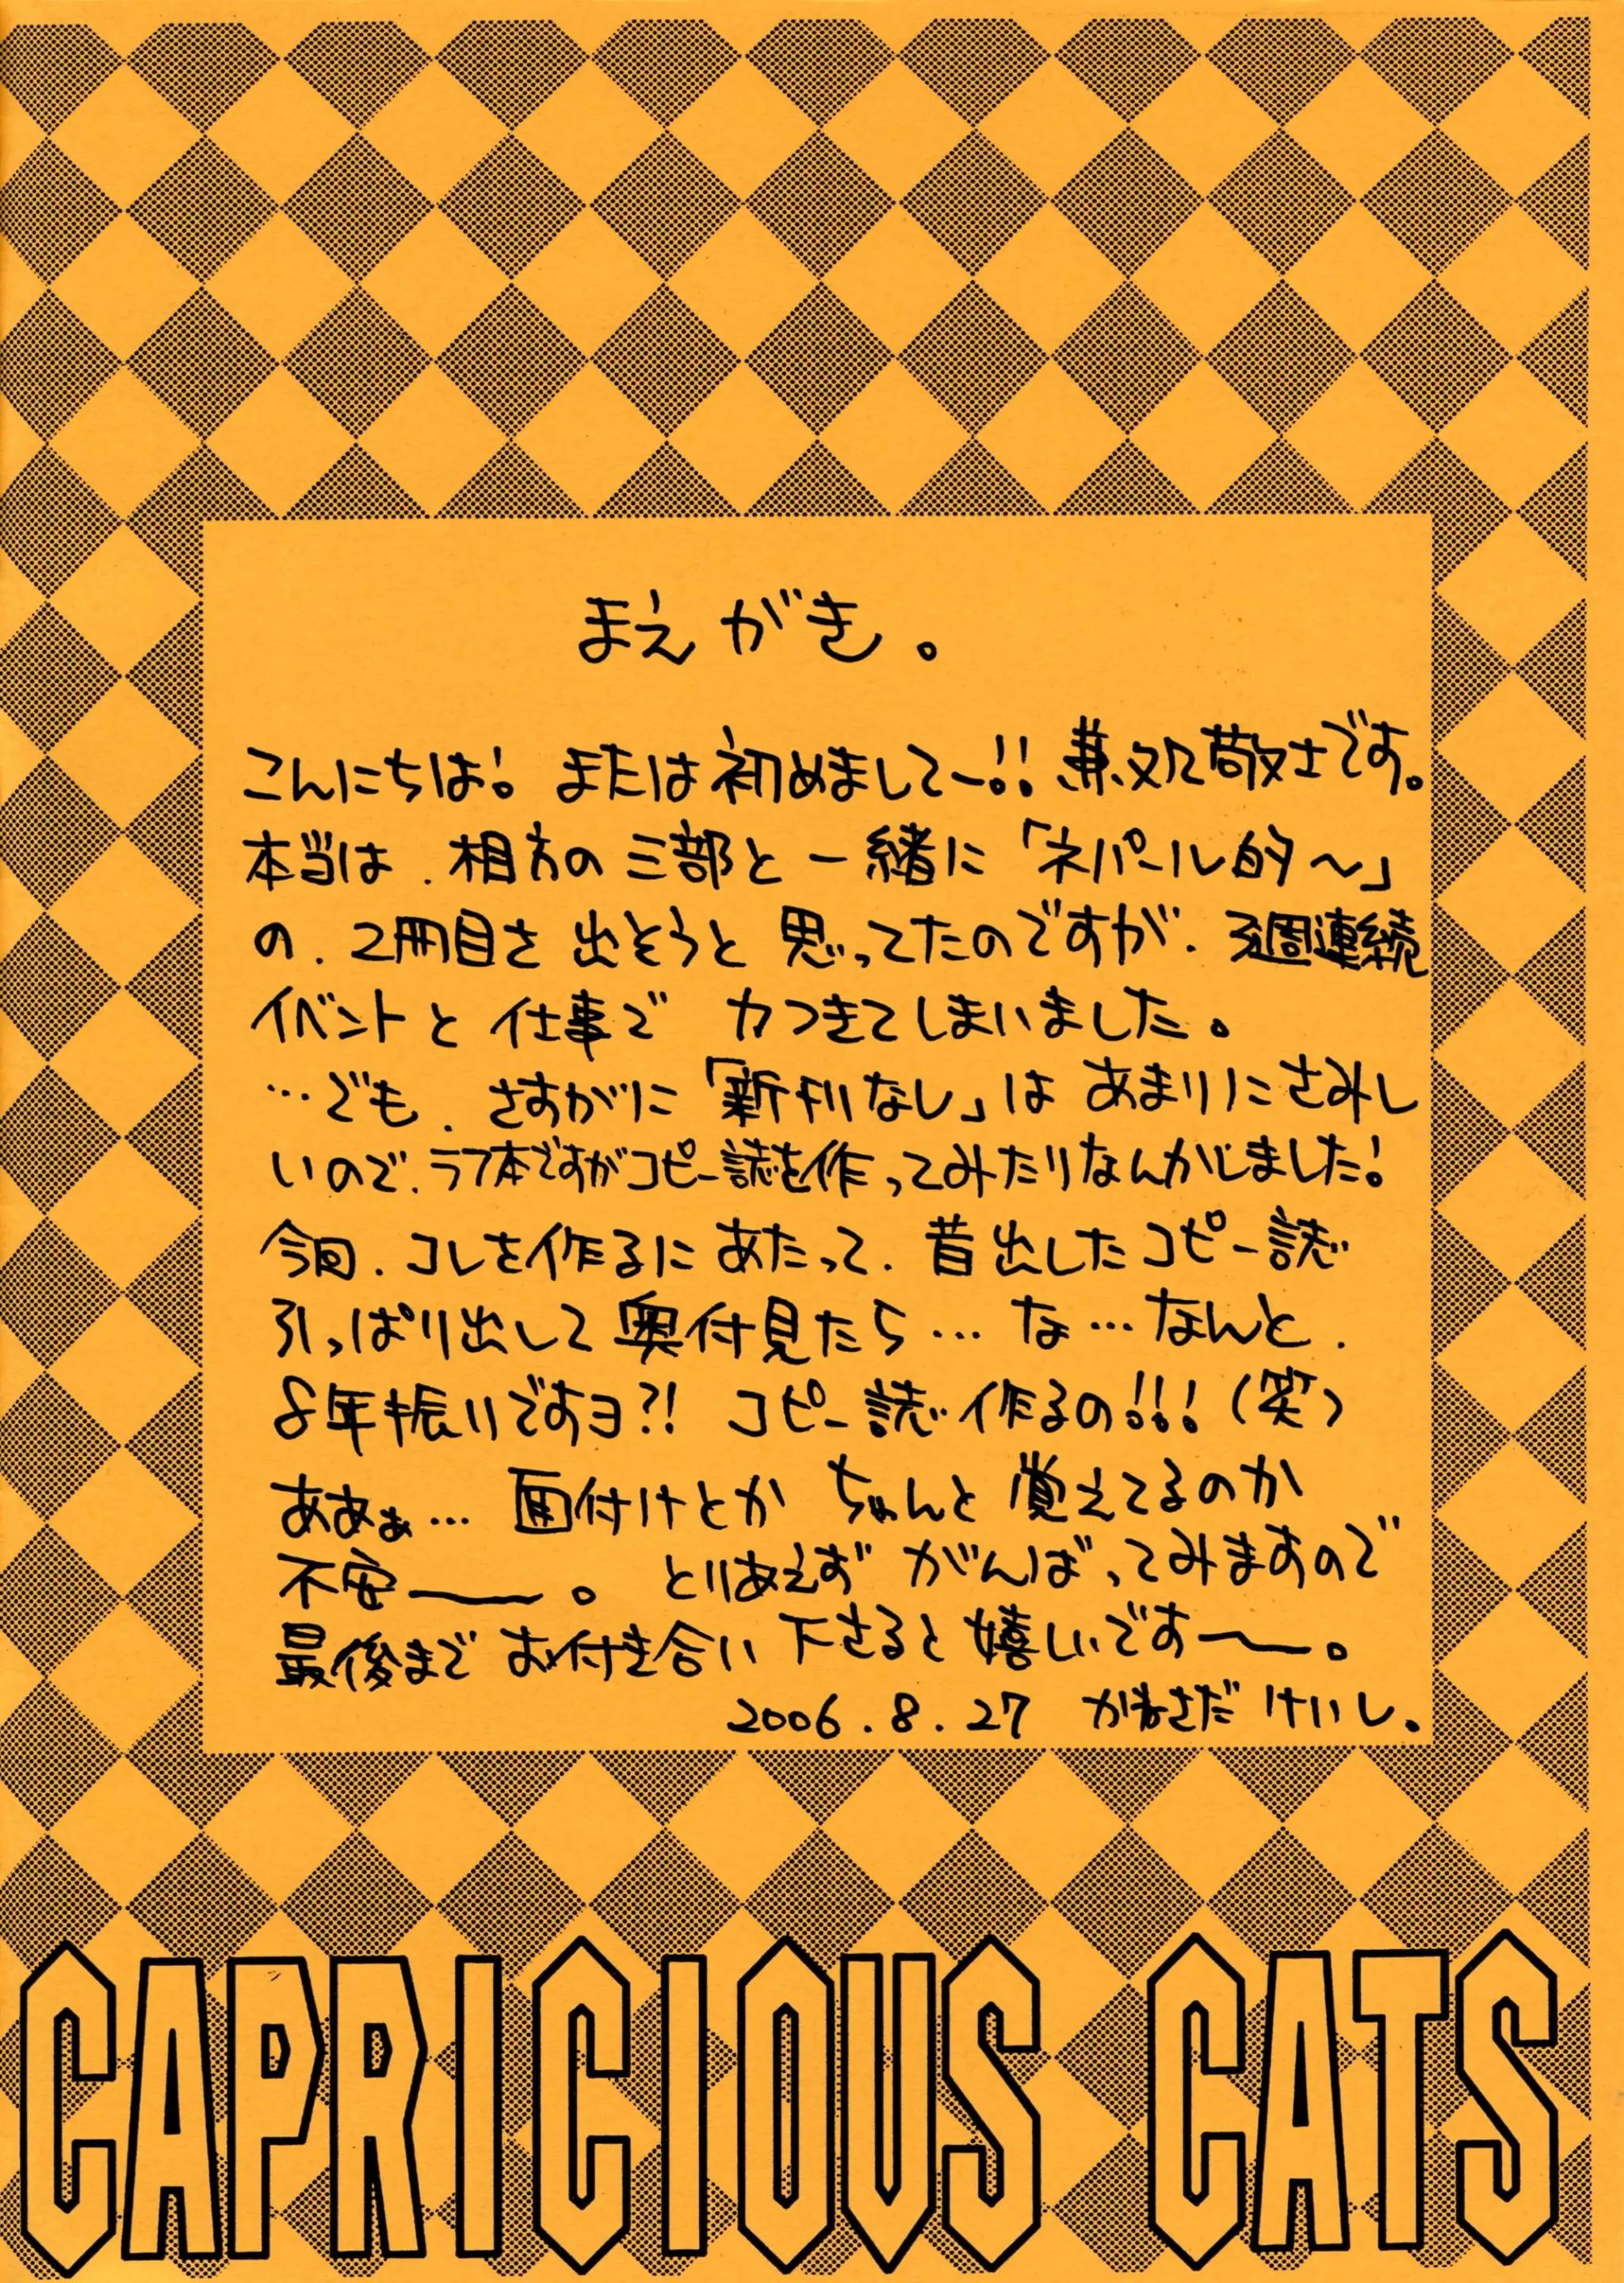 まえがき。
こんにちは! または初めましてー!! 兼処敬士です。
本当は、相方の三部と一緒に「ネパール的〜」
の、2冊目を出そうと思ってたのですが、3週連続
イベントと仕事で 力つきてしまいました。
…でも、さすがに「新刊なし」は あまりにさみし
いので、ラフ本ですがコピー誌を作ってみたりなんかしました!
今回、コレを作るにあたって、昔出したコピー誌
引っぱり出して奥付見たら…な…なんと、
8年振りですヨ?! コピー誌作るの!!!(笑)
ああぁ… 面付けとか ちゃんと覚えてるのか
不安――。 とりあえず がんばってみますので
最後まで お付き合い下さると嬉しいです〜。
2006.8.27 かねさだ けいし。
CAPRICIOUS CATS